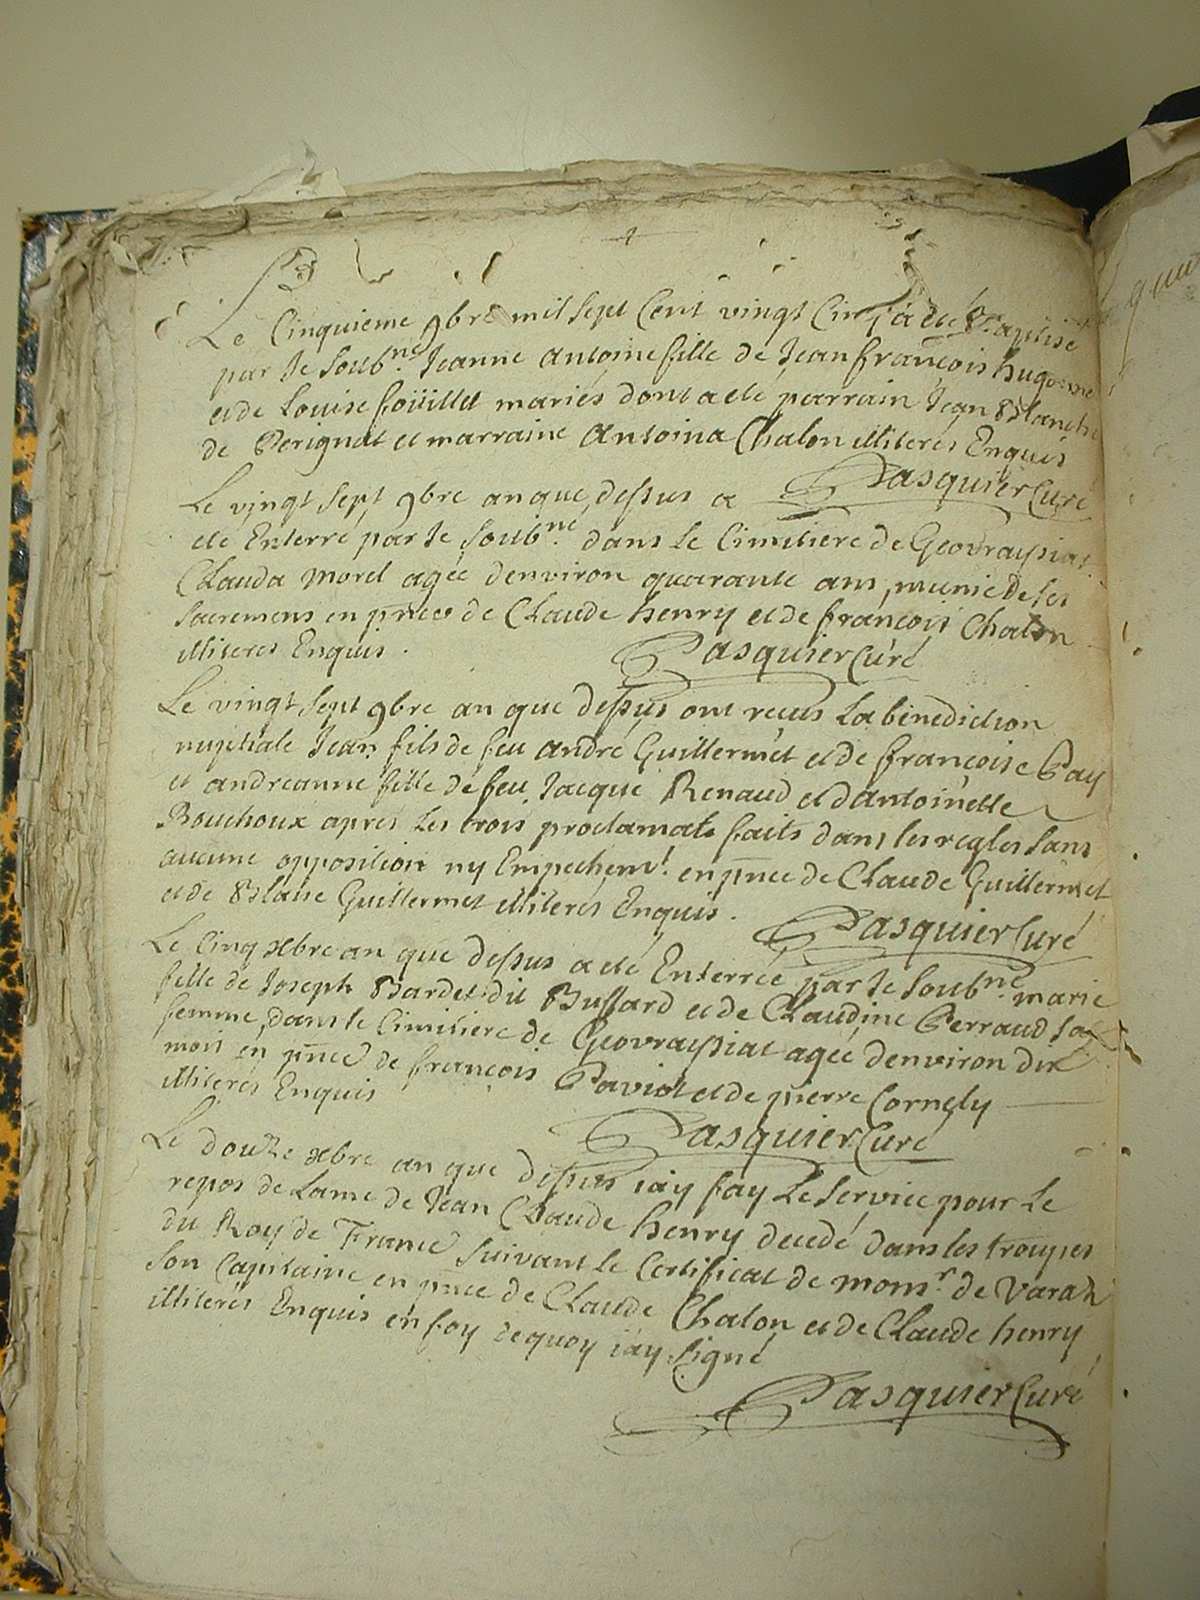 Le Cinquieme 9bre mil sept Cent vingt Cinq a eté Baptisé
par Je soub.né Jeanne Antoine fille de Jean françois hugonne
et de Louise foüillet mariés dont a eté parrain Jean Blanche
de Perignat et marraine Antoina Chalon illiterés Enquis
Pasquier Curé
Le vingt sept 9bre an que dessus a
eté Enterré par Je soub.né dans Le Cimitiere de Geovraysiat
Clauda Morel agée denviron quarante ans, munie de ses
sacremens en pnce de Claude henry et de françois Chalon
illiterés Enquis.
Pasquier Curé
Le vingt sept 9bre an que dessus ont reçus La benediction
nuptiale Jean fils de feu andré Guillermet et de françoise Pay
et andreanne fille de feu Jacque Renaud et dantoinette
Bouchoux apres Les trois proclamat.s faits dans les regles sans
aucune opposition ny Empechem.t en pnce de Claude Guillermet
et de Blaise Guillermet illiterés Enquis.
Pasquier Curé
Le Cinq xbre an que dessus a eté Enterrée par Je soub.né marie
fille de Joseph Bardet dit Buffard et de Claudine Perraud sa
femme, dans le Cimitiere de Geovraysiat agée denviron dix
mois en pnce de françois Paviot et de pierre Cornely
illiterés Enquis
Pasquier Curé
Le douze xbre an que dessus iay fay Le service pour Le
repos de Lame de Jean Claude henry decedé dans les trouppes
du Roy de France suivant le Certificat de mons.r de Varax
son Capitaine en pnce de Claude Chalon et de Claude henry
illiterés Enquis en foy de quoy iay signé
Pasquier Curé